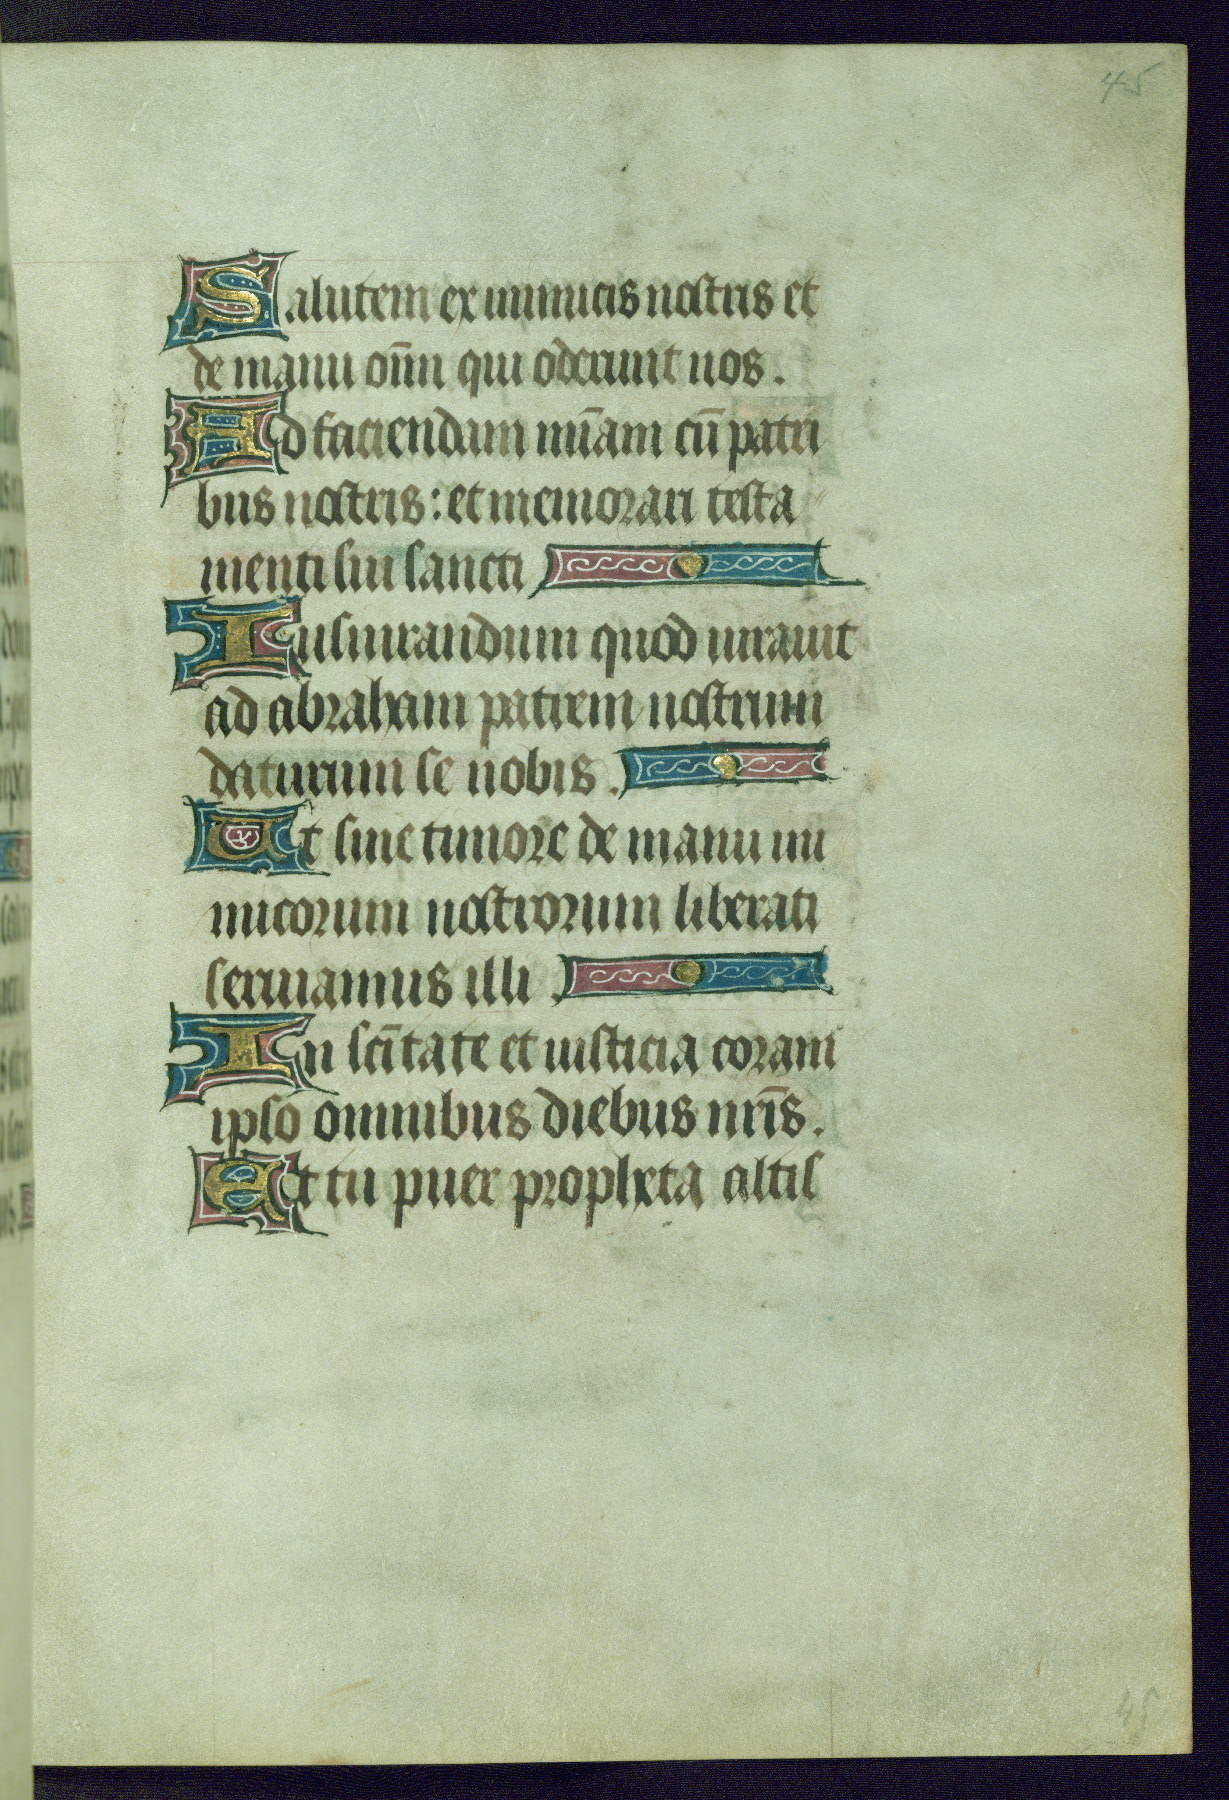 45
Salutem ex inimicis nostris et
de manu om̄n qui oderunt nos.
Ad faciendam mīam cū patri
bus nostris: et memorari testa
menti sui sancti
Iusiurandum quod iurauit
ad abraham patrem nostrum
daturum se nobis.
Ut sine timore de manu ini
micorum nostrorum liberati
seruiamus illi.
In scītate et iusticia coram
ipso omnibus diebus nr̄is.
Et tu puer propheta altis
45